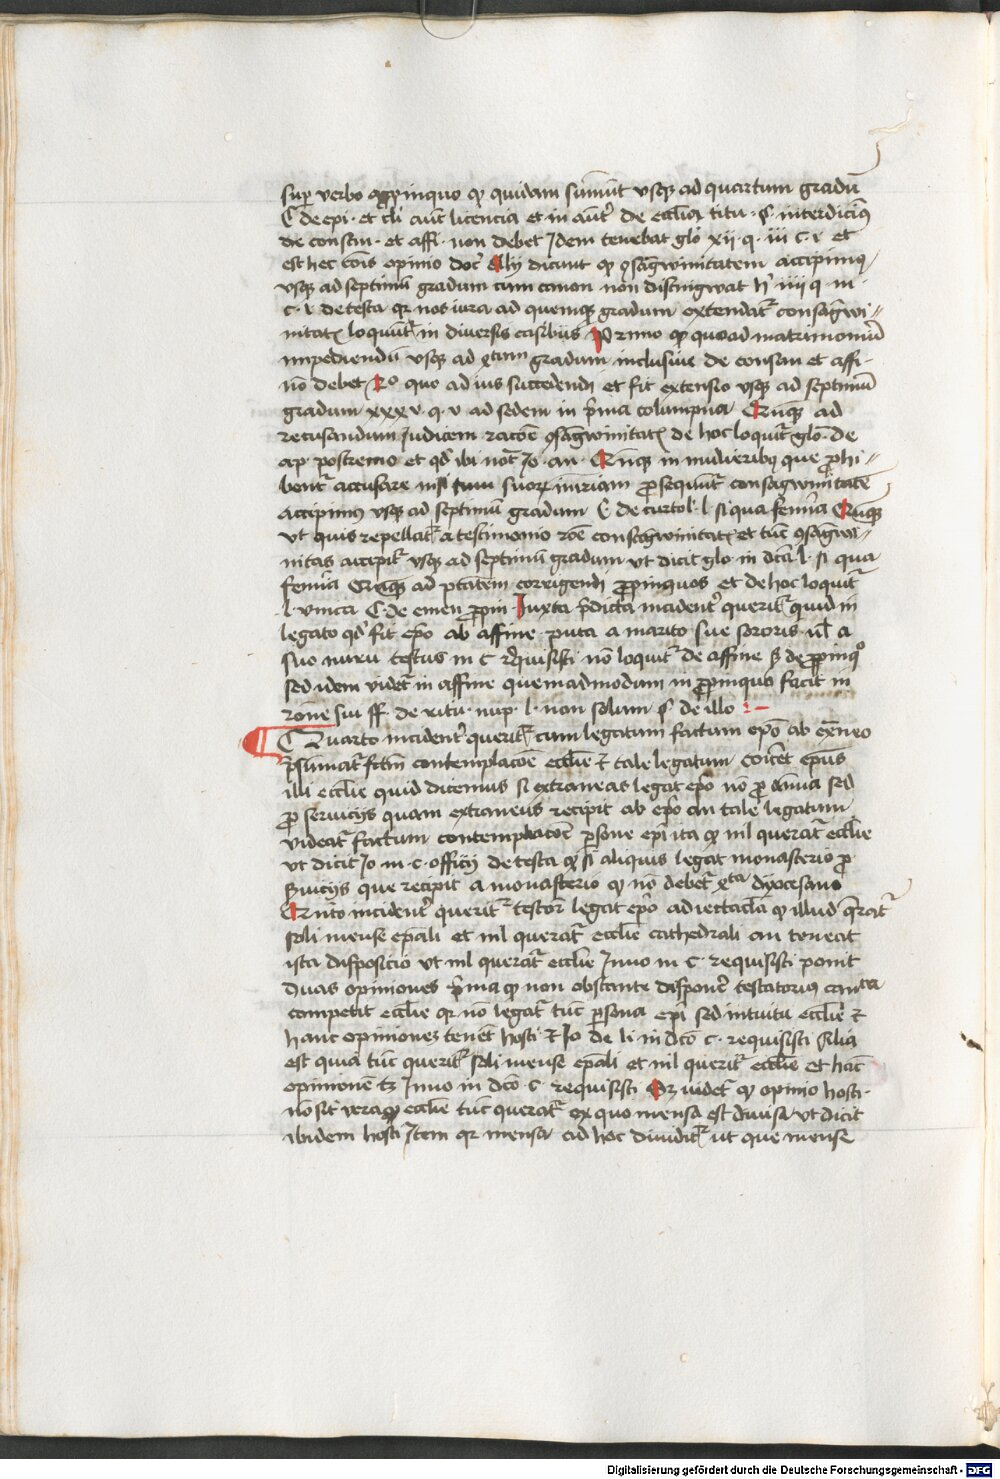 sup verbo propinquo qͥ quidam sumūt vsqꝫ ad quartum gradū
C de epi · et cli aut͛ licencia et in aut͛ de eccl̄iaꝝ titu · §· interdictꝰ
de consan · et affi · non debet Idem tenebat glo xii · q · iii c · i et
est hec cōis opinio doc͛ Alij dicunt qͥ ꝯsāgwinitatem accipimꝰ
vsqꝫ ad septimū gradum cum canon non distingwat h͛ iiii q · iii ·
c · i de testa qꝛ not iura ad quemqꝫ gradum extendat͛ consāgwi〃
nitatꝭ loquūt͛ in diuersis casibus Primo qͥ quoad matrimoniū
impediendū vsqꝫ ad qͣrtum gradum inclusiue de consan et affi ·
nō debet quo ad ius succedendi et fit extensio vsqꝫ ad septimū
gradum xxxv · q · v ad sedem in p̄ma columpna ad
recusandum Iudicem rac̄oe ꝯsāgwinitatꝭ de hoc loquit͛ glo · de
ap · postremo et qd̄ ibi not͛ Io · an · in mulieribꝰ que ꝓhi〃
bent͛ accusare nisi suoꝝ iniuriam ꝓsequūt͛ consāgwinitatē
accipimꝰ vsqꝫ ad septimū gradum C de l · si qua femīa
vt quis repellat͛ a testimonio rōe consāgwinitatꝭ et tūc ꝯsāgwi〃
nitas accipit͛ vsqꝫ ad septimū gradum vt dicit glo · in dc̄a l · si qua
femīa ad pt̄atem corrigendi ꝓpinquos et de hoc loquit͛
l · vnica C · de emen ꝓpin · Iuxta p̄dicta incident͛ querit͛ quid in
legato qd̄ fit ep̄o ab affine · puta a marito sue sororis · ul̄ a
suo nuru testus in c requisisti nō loquit͛ de affine sꝫ de ꝓpinqͦ
sed idem videt͛ in affine quemadmodum in ꝓpinquo facit in
rōne sui ff · de ritu · nup · l · non solum § de illo :–
¶ Quarto incident͛ querit͛ cum legatum factum ep̄o ab ex̄neo
p̄sumat͛ fc̄m contemplac̄oe eccl̄ie et tale legatum ep̄us
illi eccl̄ie quid dicemus si extraneus legat ep̄o nō ꝓ aīma sed
ꝓ seruicijs quam extraneus recipit ab ep̄o an tale legatum
videat͛ factum contemplac̄oe ꝑsone ep̄i ita qͥ nil querat͛ eccl̄ie
vt dicit Io in · c · officij de testa qͥ si aliquis legat monasterio ꝓ
ẜuicijs que recipit a monasterio qͥ nō debet͛ qͣrta dyocesano
Quinto incident͛ querit͛ testor͛ legat ep̄o adiecta cl̄a qͥ illud q̄rat͛
soli mense ep̄ali et nil querat͛ eccl̄ie cathedrali an teneat
ista disposicio vt nil querat͛ eccl̄ie Inno in c · requisisti ponit
duas opiniones p̄ma qͥ non obstante disponͤ testatoris canͨa
competit eccl̄ie qꝛ nō legat͛ tūc ꝑsona ep̄i sed intuitu eccl̄ie et
hanc opinionez tenēt hosti et Io de li in dc̄o c · requisisti Alia
est quia tūc querit͛ soli mense ep̄ali et nil querit͛ eccl̄ie et hāc
opinionē tꝫ Inno in dc̄o · c · requisisti videt͛ qͥ opinio hosti ·
nō sit vera qͥ eccl̄ie tūc querat͛ ex quo mensa est diuisa vt dicit
ibidem hosti Item qꝛ mensa ad hoc diuidit͛ ut que mense
Digitalisierung gefördert durch die Deutsche Forschungsgemeinschaft - DFG